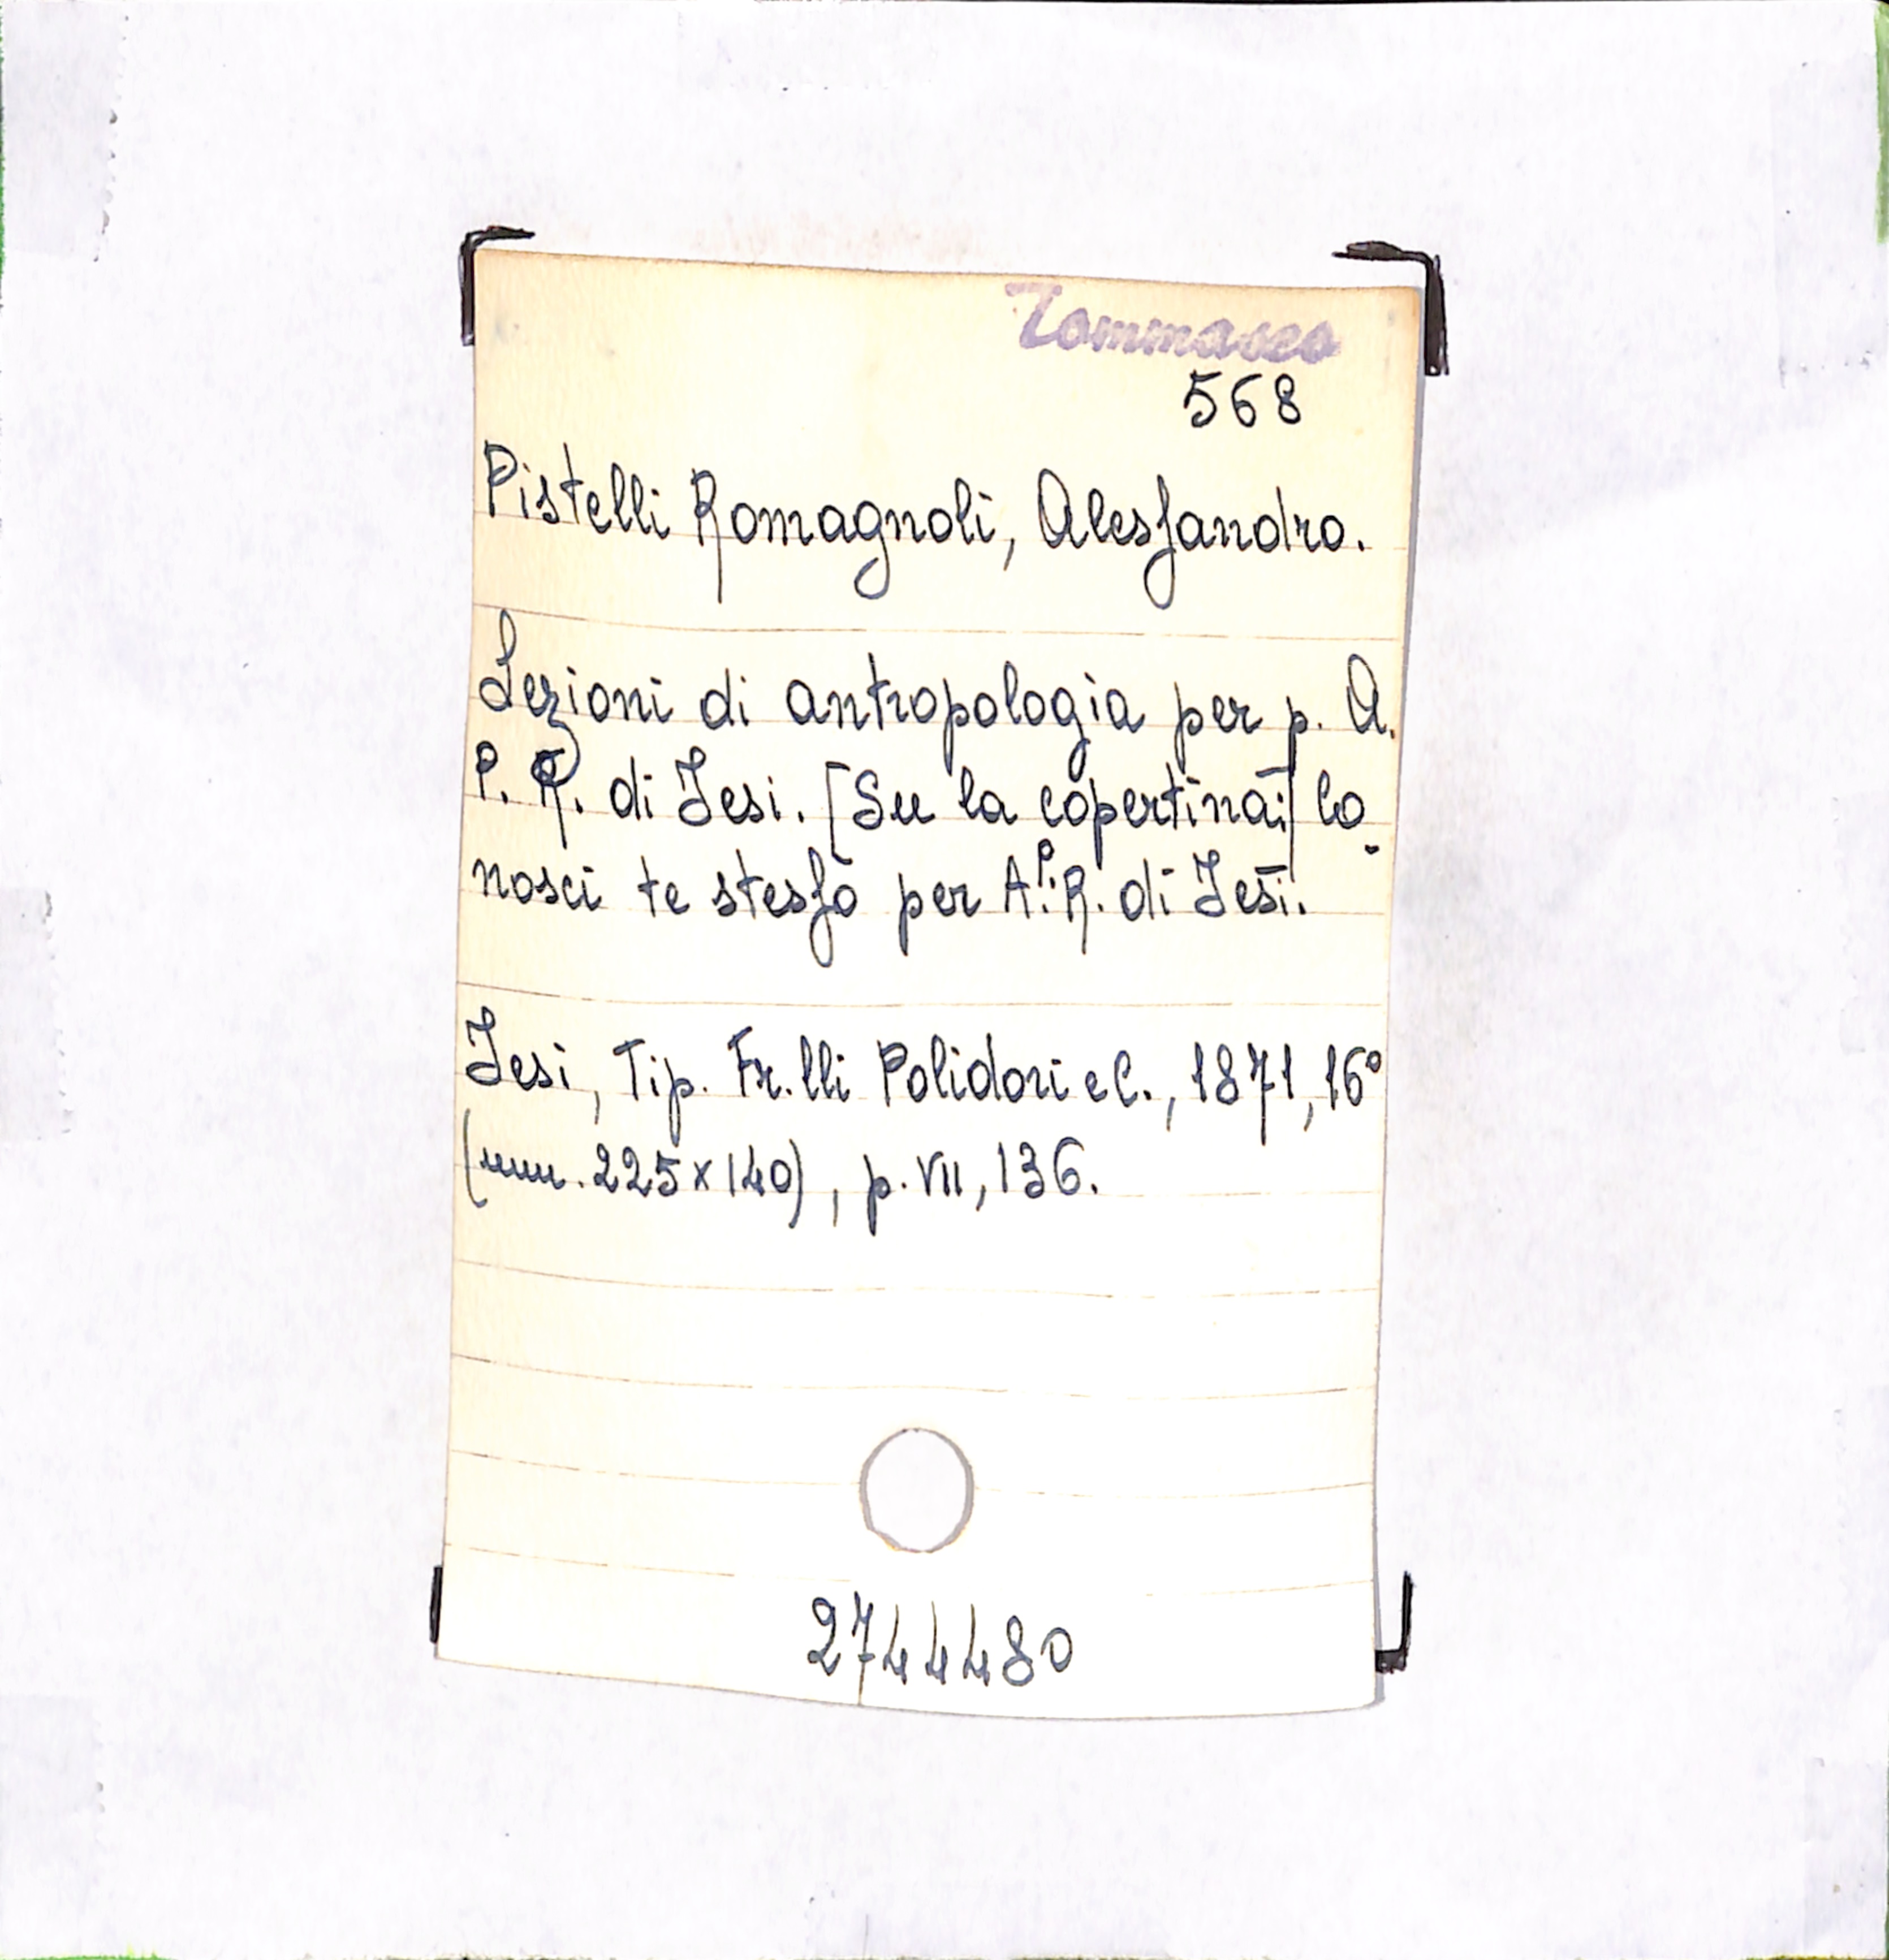 Tommaseo
568
Pistelli Romagnoli, Alessandro.
Lezioni di antropologia per p. A.
P. R. di Jesi. [Su la copertina:] Co
nosci te stesso per A. P. R. di Jesi.
Jesi, Tip. Fr.lli Polidori e C., 1871, 16°
(mm. 225 x 140), p. VII, 136.
2744480